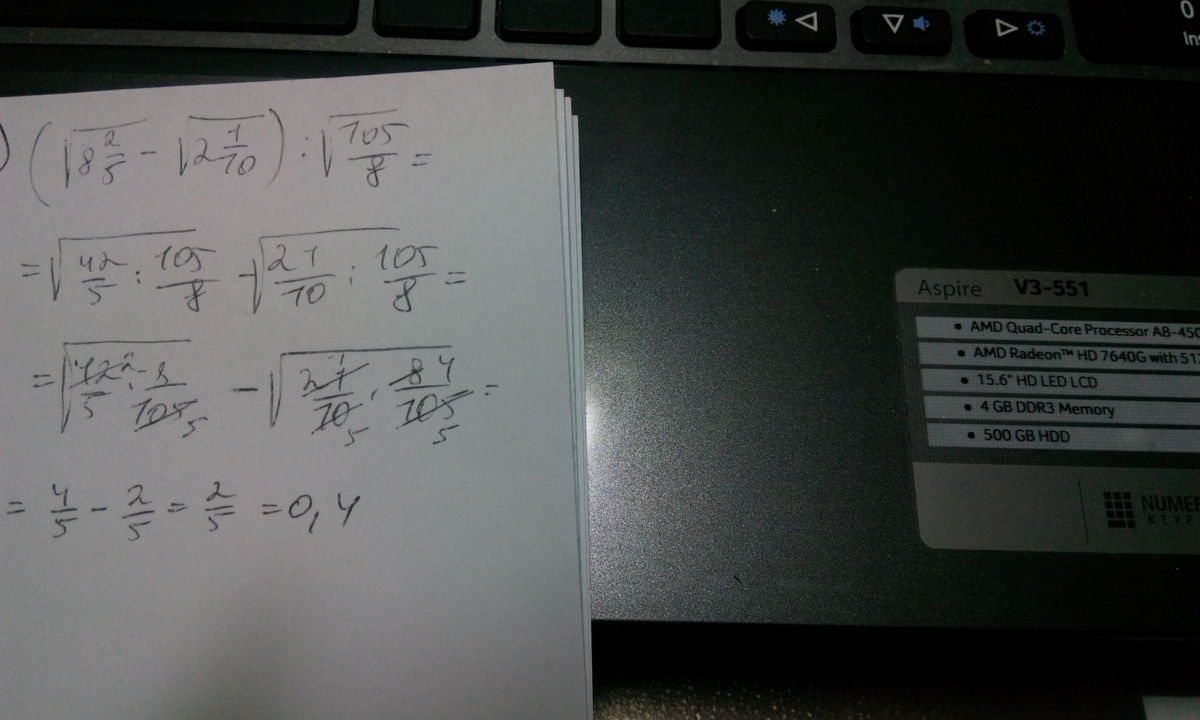 ) (√(8 2/5) - √(2 1/10)) : √(105/8) =
= √(42/5 : 105/8) - √(21/10 : 105/8) =
= √(42 2/5 · 8/105 5) - √(21 1/10 5 · 8 4/105 5) =
= 4/5 - 2/5 = 2/5 = 0,4
Aspire V3-551
• AMD Quad-Core Processor A8-450
• AMD Radeon™ HD 7640G with 51
• 15.6" HD LED LCD
• 4 GB DDR3 Memory
• 500 GB HDD
NUMER
KEYP
0
Ins